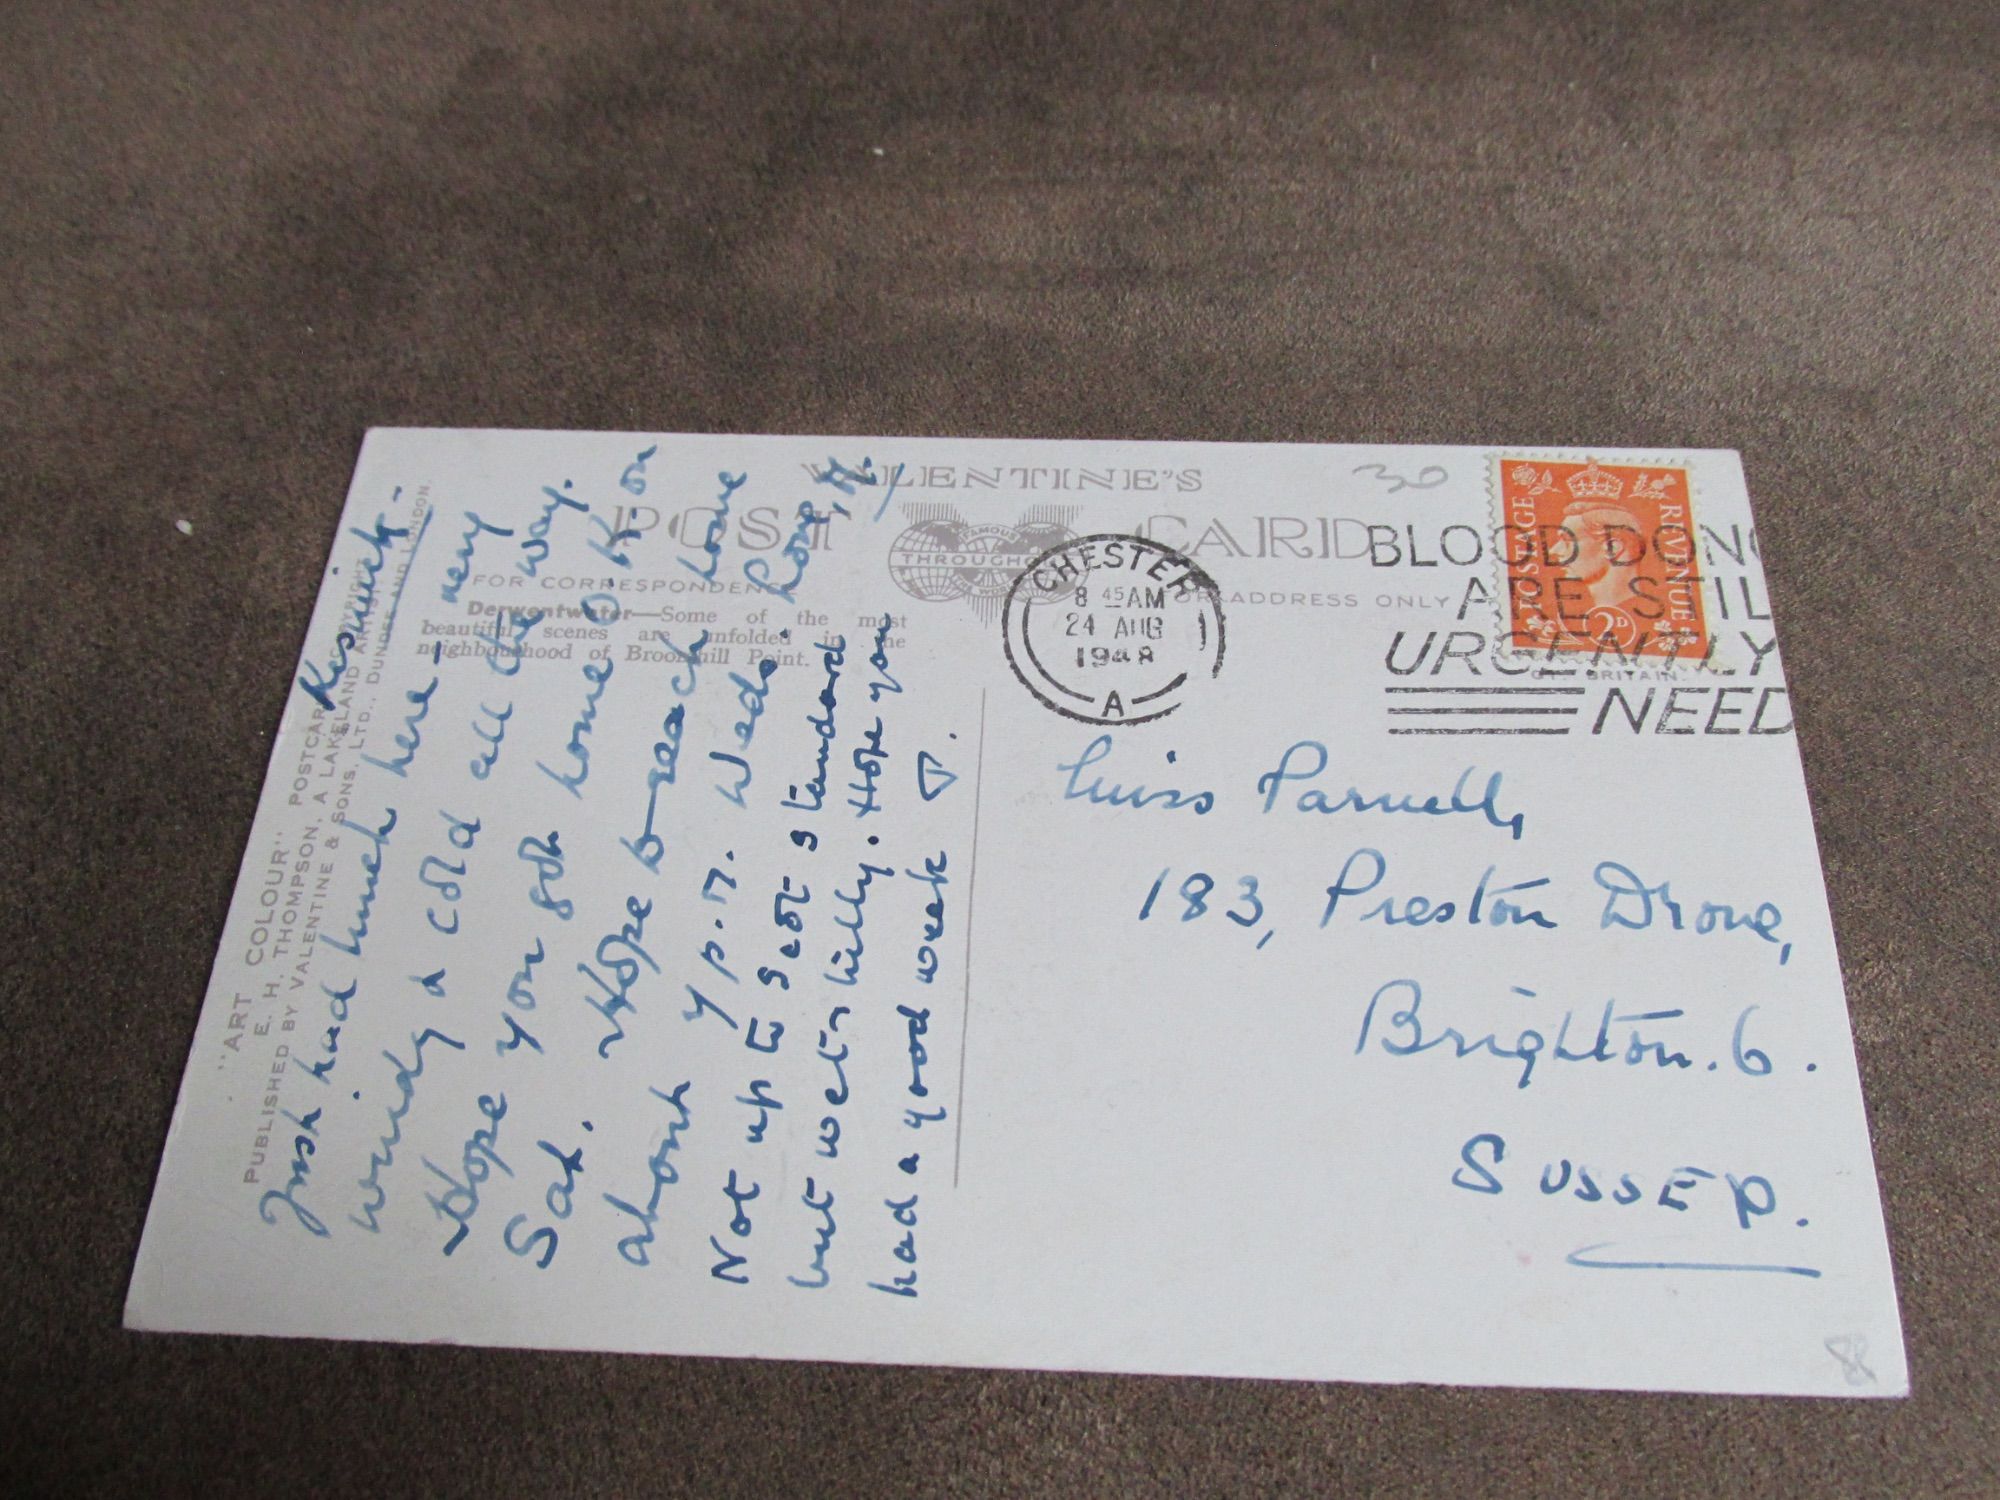 "ART COLOUR"
E. H. THOMPSON, POSTCARD
PUBLISHED BY VALENTINE & SONS, LTD., DUNDEE AND LONDON.
A LAKELAND ARTIST
VALENTINE'S
POST CARD
FAMOUS
THROUGHOUT
FOR CORRESPONDENCE
FOR ADDRESS ONLY
Derwentwater—Some of the most
beautiful scenes are unfolded in the
neighbourhood of Broomhill Point.
Keswick -
Just had lunch here - very
windy & cold all the way.
Hope you got home O.K. on
Sat. Hope to reach home
about 4 p.m. Weds
Not up to Scot standard
but wet & hilly. Hope you
had a good week
30
CHESTER
8 45 AM
24 AUG
1948
A
BLOOD DONO
ARE STIL
URGENTLY
NEED
POSTAGE
REVENUE
2D
BRITAIN.
Miss Parnell,
183, Preston Drove,
Brighton. 6.
SUSSEX.